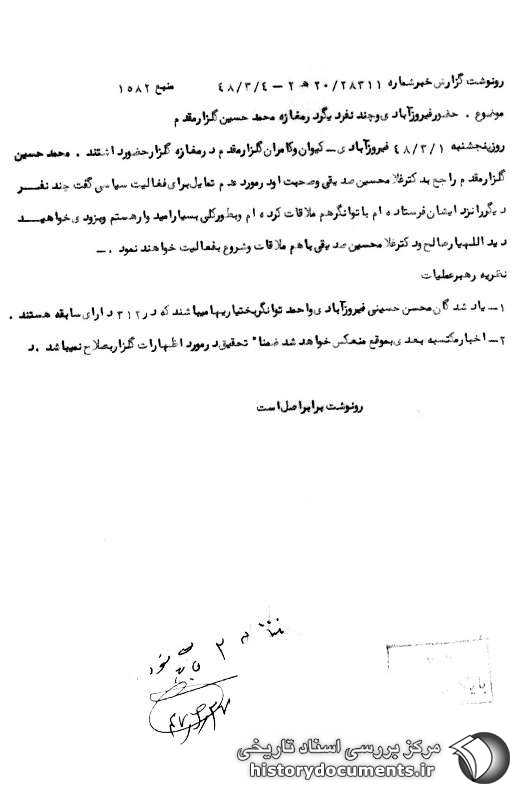 رونوشت گزارش خبر شماره ۲۰/۲۸۳۱۱ ه‍ ۲ – ۴۸/۳/۴ منبع ۱۵۸۲
موضوع . حضور فیروزآبادی و چند نفر دیگر در مغازه محمد حسین گلزار مقدم
روز پنجشنبه ۴۸/۳/۱ فیروزآبادی – کیوان و کامران گلزار مقدم در مغازه گلزار حضور داشتند . محمد حسین
گلزار مقدم راجع به دکتر غلامحسین صدیقی و صحبت او در مورد عدم تمایل برای فعالیت سیاسی گفت چند نفر
دیگر را نزد ایشان فرستاده ام با توانگر هم ملاقات کرده ام و بطور کلی بسیار امیدوار هستم و بزودی خواهید
دید اللهیار صالح و دکتر غلامحسین صدیقی با هم ملاقات و شروع بفعالیت خواهند نمود . –
نظریه رهبر عملیات
۱– یاد شدگان محسن حسینی فیروزآبادی و احمد توانگر بختیاریها میباشند که در ۳۱۲ دارای سابقه هستند .
۲– اخبار مکتسبه بعدی بموقع منعکس خواهد شد ضمنا" تحقیق در مورد اظهارات گلزار بصلاح نمیباشد . د
رونوشت برابر اصل است
مرکز بررسی اسناد تاریخی
historydocuments.ir